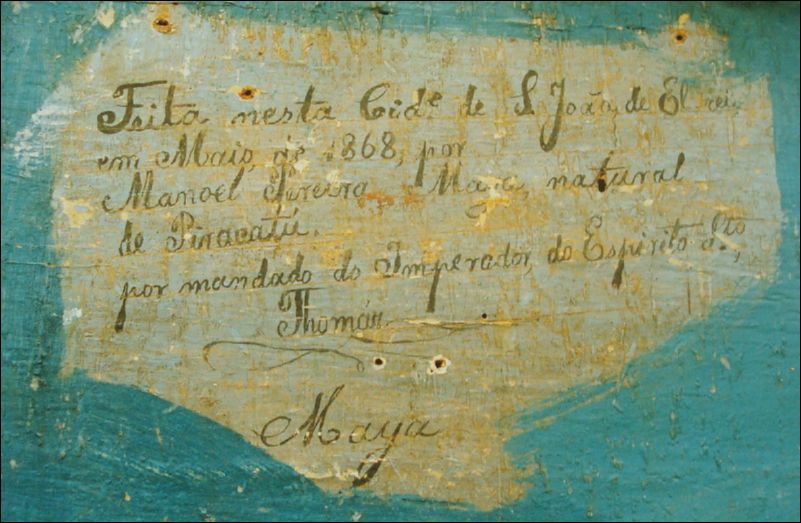 Feita nesta Cid.e de S. João de El rei
em Maio de 1868, por
Manoel Pereira Maya, natural
de Piracatú.
por mandado do Imperador, do Espirito Sto,
Thomáz
Maya